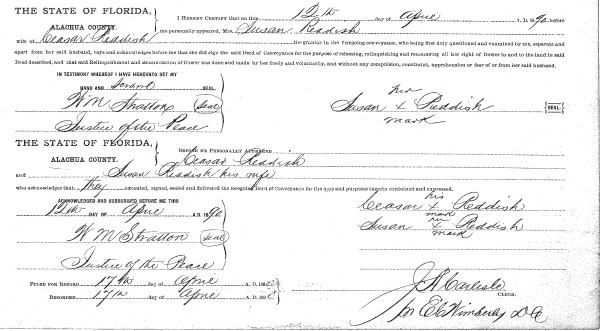 THE STATE OF FLORIDA,
ALACHUA COUNTY.
I HEREBY CERTIFY that on this 12th day of April A. D. 90, before
me personally appeared, Mrs. Susan Reddish
wife of Ceasar Reddish the grantor in the foregoing conveyance, who being first duly questioned and examined by me, separate and
apart from her said husband, says and acknowledges before me that she did sign the said Deed of Conveyance for the purpose of releasing, relinquishing and reconveying all her right of Dower in and to the land in said
Deed described, and that said Relinquishment and Renunciation of Dower was done and made by her freely and voluntarily, and without any compulsion, constraint, apprehension or fear of or from her said husband.
IN TESTIMONY WHEREOF I HAVE HEREUNTO SET MY
HAND AND SEAL
W M Stratton Seal
Justice of the Peace
her
Susan x Reddish {SEAL.}
mark
THE STATE OF FLORIDA,
ALACHUA COUNTY.
BEFORE ME PERSONALLY APPEARED
Ceasar Reddish
and Susan Reddish his wife
who acknowledge that they executed, signed, sealed and delivered the foregoing Deed of Conveyance for the uses and purposes therein contained and expressed.
ACKNOWLEDGED AND SUBSCRIBED BEFORE ME THIS
12th DAY OF April A. D. 1890
W M Stratton Seal
Justice of the Peace
his
Ceasar x Reddish
mark
her
Susan x Reddish
mark
FILED FOR RECORD 17th day of April A. D. 18
RECORDED 17th day of April A. D. 18
J A Carlisle
CLERK.
pr E C Wimberly D C